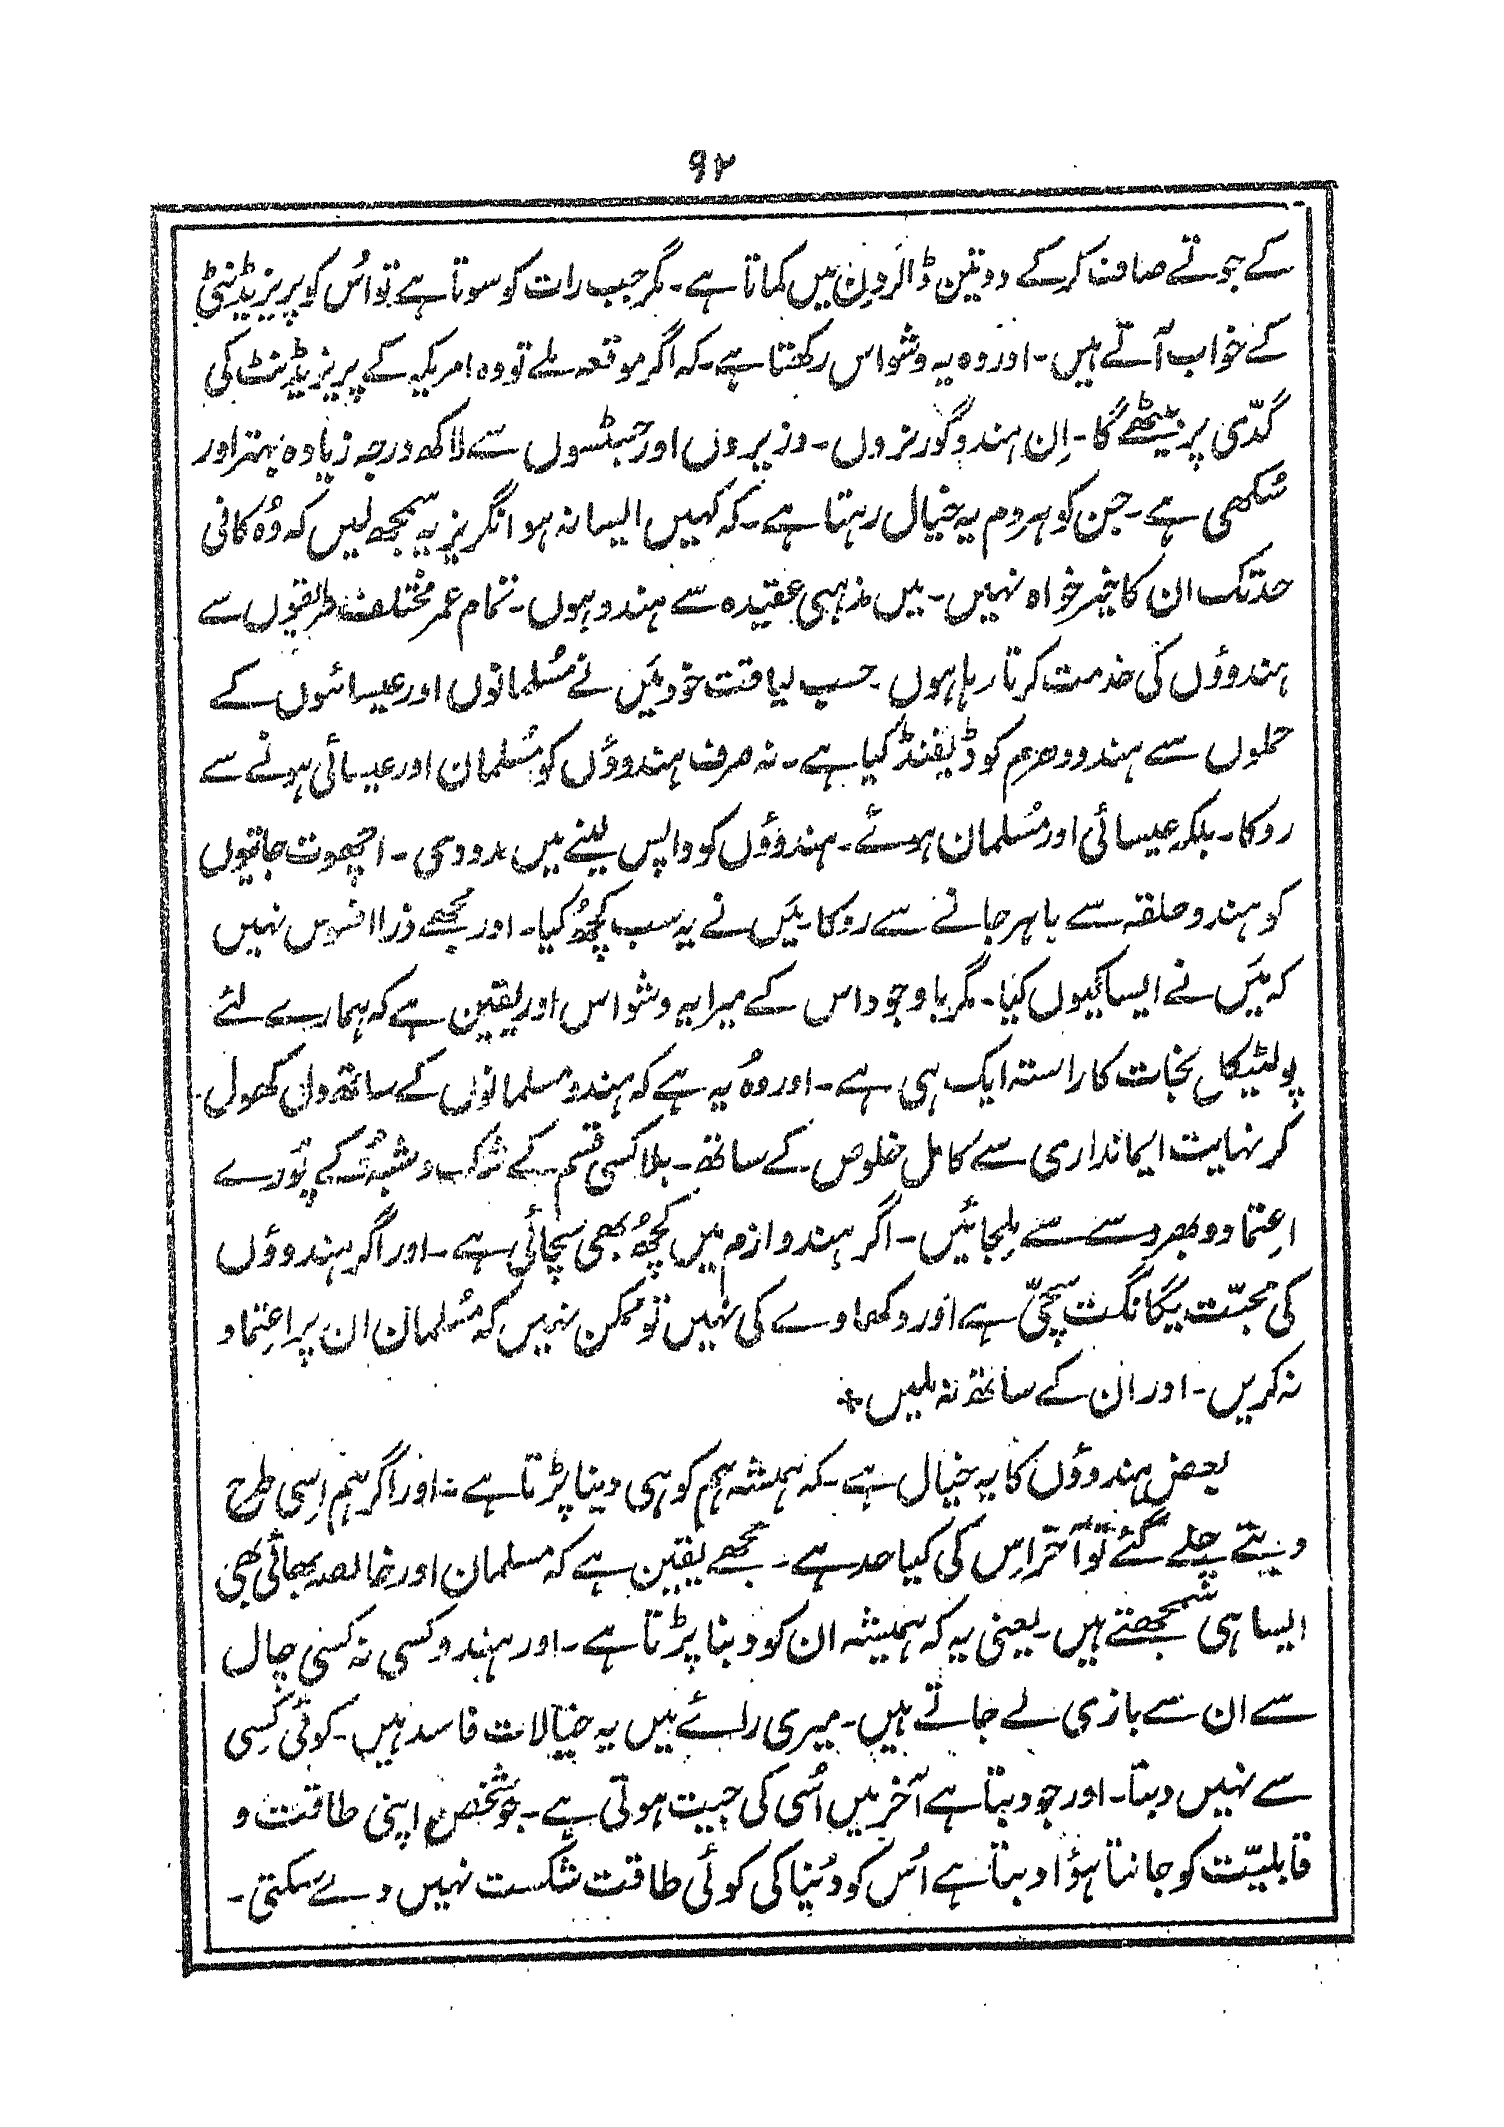 ۹۲
کے جوتے صاف کرکے دو تین ڈالر دن میں کماتا ہے۔ مگر جب رات کو سوتا ہے تو اُس کو پریزیڈنٹی
کے خواب آتے ہیں۔ اور وہ یہ وشواس رکھتا ہے۔ کہ اگر موقعہ ملے تو وہ امریکہ کے پریزیڈنٹ کی
گدّی پر بیٹھے گا۔ اِن ہندو گورنروں۔ وزیروں اور جسٹسوں سے لاکھ درجہ زیادہ بہتر اور
سُکھی ہے۔ جن کو ہر دم یہ خیال رہتا ہے۔ کہ کہیں ایسا نہ ہو انگریز یہ سمجھ لیں کہ وُہ کافی
حد تک ان کا خیر خواہ نہیں۔ میں مذہبی عقیدہ سے ہندو ہوں۔ تمام عمر مختلف طریقوں سے
ہندوؤں کی خدمت کرتا رہا ہوں۔ حسب لیاقت خود میَں نے مُسلمانوں اور عیسائیوں کے
حملوں سے ہندو دھرم کو ڈیفنڈ کیا ہے۔ نہ صرف ہندوؤں کو مُسلمان اور عیسائی ہونے سے
روکا۔ بلکہ عیسائی اور مُسلمان ہوئے۔ ہندوؤں کو واپس لینے میں مدد دی۔ اچھوت جاتیوں
کو ہندو حلقہ سے باہر جانے سے روکا۔ میَں نے یہ سب کچھُ کیا۔ اور مجھے ذرا افسوس نہیں
کہ میَں نے ایسا کیوں کیا۔ مگر باوجود اس کے میرا یہ وشواس اور یقین ہے کہ ہمارے لئے
پولٹیکل نجات کا راستہ ایک ہی ہے۔ اور وُہ یہ ہے کہ ہندو مسلمانوں کے ساتھ دل کھول
کر نہایت ایمانداری سے کامل خلوص کے ساتھ۔ بلا کسی قسم کے شک و شبُہ کے پُورے
اعِتماد و بھروسے سے مِلجائیں۔ اگر ہندو ازم میں کچھُ بھی سچّائی ہے۔ اور اگر ہندوؤں
کی محبّت یگانگت سچّی ہے اور دکھاوے کی نہیں تو ممکن نہیں کہ مُسلمان ان پر اعِتماد
نہ کریں۔ اور ان کے ساتھ نہ ملیں +
بعض ہندوؤں کا یہ خیال ہے۔ کہ ہمیشہ ہم کو ہی دینا پڑتا ہے۔ اور اگر ہم اِسی طرح
دیتے چلے گئے تو آخر اِس کی کیا حد ہے۔ مجھے یقین ہے کہ مسلمان اور خالصہ بھائی بھی
ایسا ہی سمجھتے ہیں۔ یعنی یہ کہ ہمیشہ ان کو دبنا پڑتا ہے۔ اور ہندو کسی نہ کسی چال
سے ان سے بازی لے جاتے ہیں۔ میری رائے میں یہ خیالات فاسد ہیں۔ کوئی کِسی
سے نہیں دبتا۔ اور جو دبتا ہے آخر میں اُسی کی جیت ہوتی ہے۔ جو شخص اپنی طاقت و
قابلیّت کو جانتا ہؤا دبتا ہے اُس کو دُنیا کی کوئی طاقت شکست نہیں دے سکتی۔